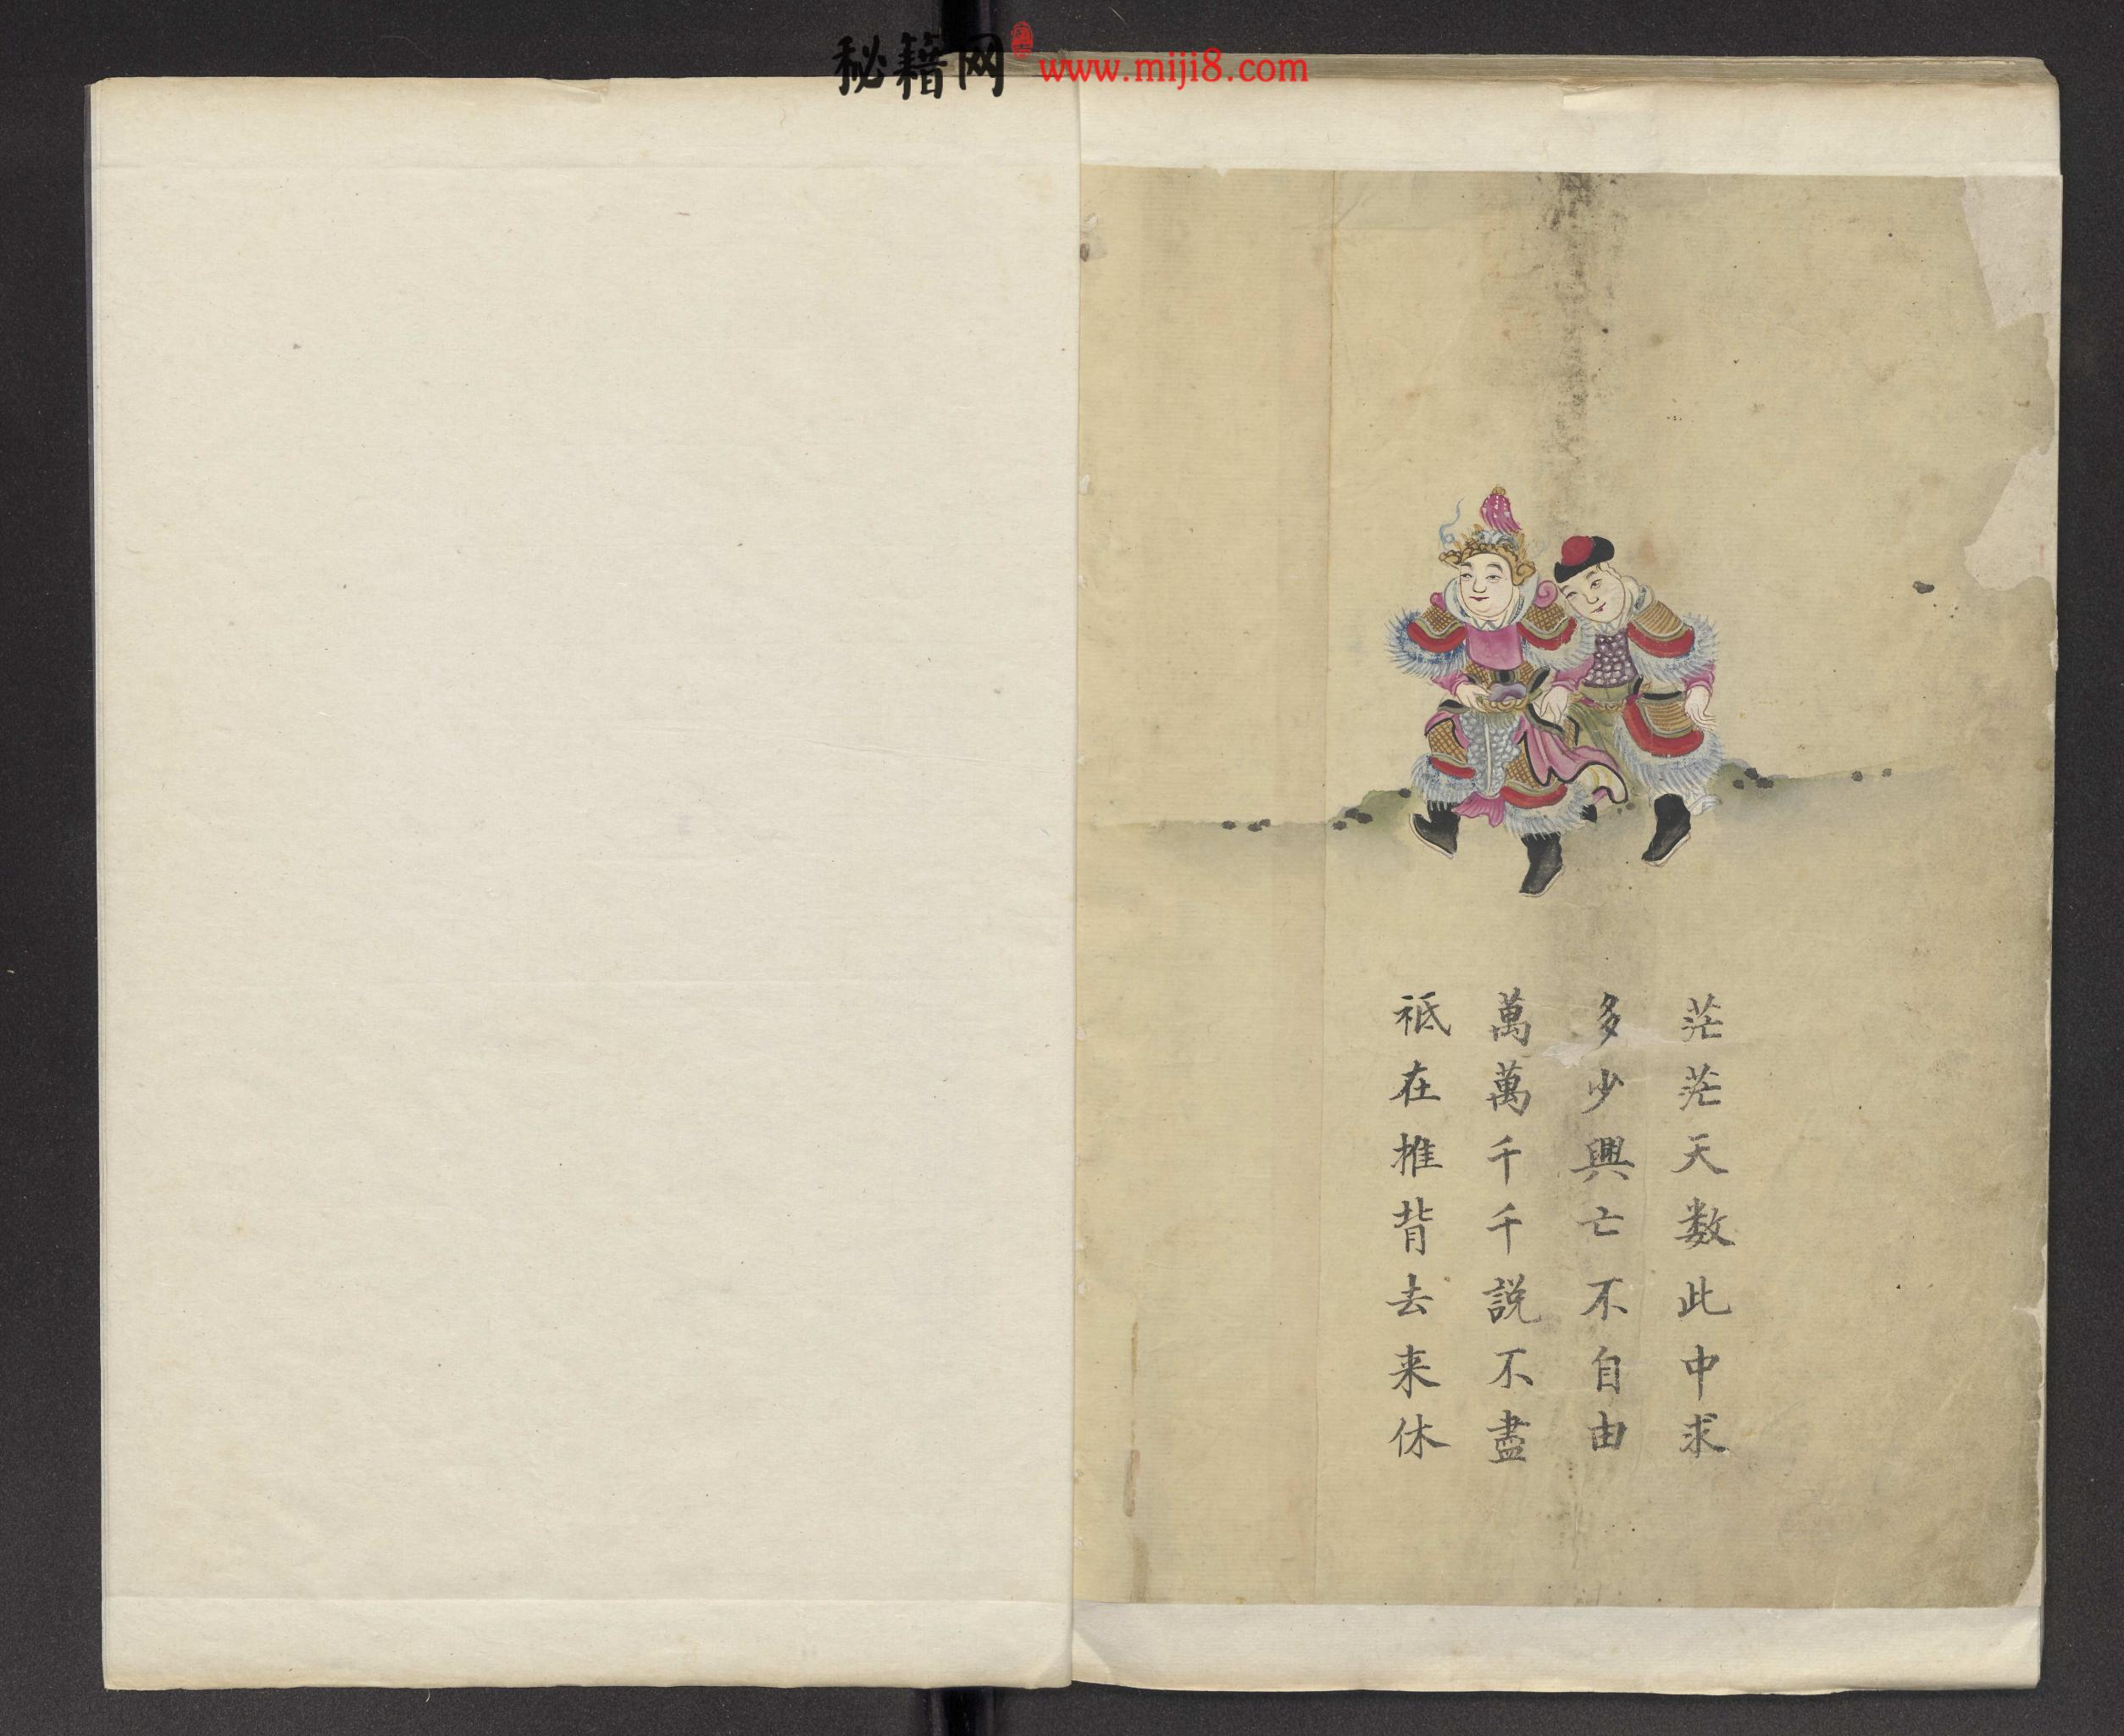 秘籍网 www.miji8.com
茫茫天数此中求
多少興亡不自由
萬萬千千説不盡
祗在推背去来休